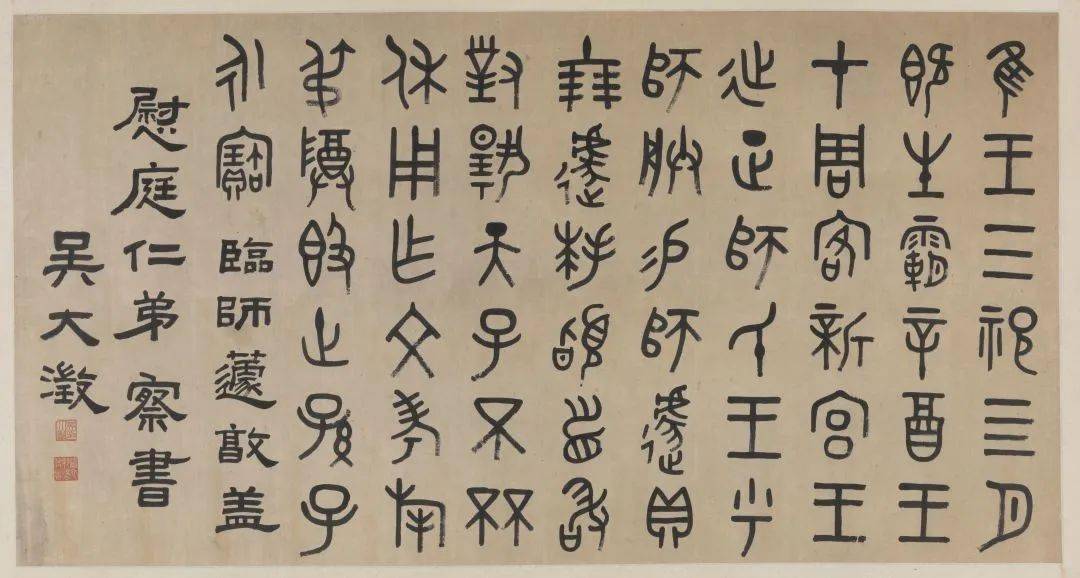 隹王三祀亖月
既生霸辛酉王
才周客新宮王
𢓊正師氏王乎
師朕易師遽貝
十朋遽拜𩒨首敢
對揚天子不不
休用乍文考旄
叔尊𣪘世孫子
永寶 臨師蘧敦蓋
慰庭仁弟察書
吳大澂